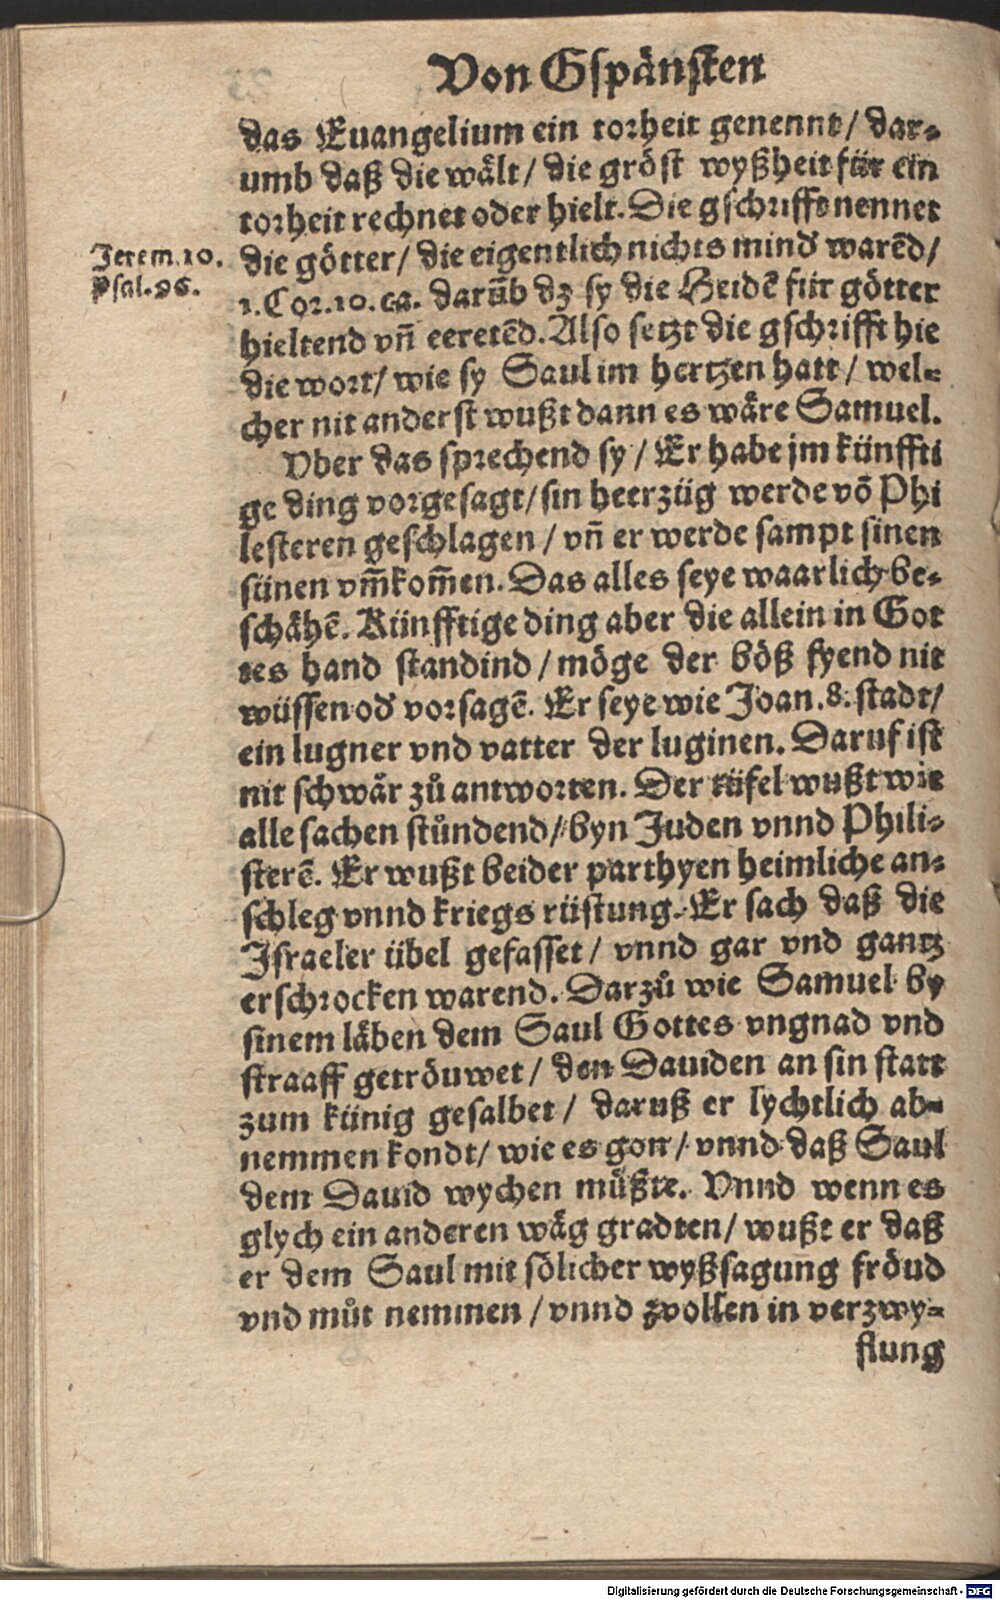 Von Gspänsten
das Euangelium ein torheit genennt / dar-
umb daß die wält / die gröst wyßheit für ein
torheit rechnet oder hielt. Die gschrifft nennet
Jerem. 10.
Psal. 96.
die götter / die eigentlich nichts mind warēd /
1. Cor. 10. ca. darūb dz sy die Heidē für götter
hieltend vñ eeretēd. Also setzt die gschrifft hie
die wort / wie sy Saul im hertzen hatt / wel-
cher nit anderst wußt dann es wäre Samuel.
Vber das sprechend sy / Er habe jm künffti
ge ding vorgesagt / sin heerzüg werde võ Phi
lesteren geschlagen / vñ er werde sampt sinen
sünen vm̄kom̄en. Das alles seye waarlich be-
schähē. Künfftige ding aber die allein in Got
tes hand standind / möge der böß fyend nit
wüssen od vorsagē. Er seye wie Joan. 8. stadt /
ein lugner vnd vatter der luginen. Daruf ist
nit schwär zů antworten. Der tüfel wußt wie
alle sachen stůndend / byn Juden vnnd Phili-
sterē. Er wußt beider parthyen heimliche an-
schleg vnnd kriegs rüstung. Er sach daß die
Israeler übel gefasset / vnnd gar vnd gantz
erschrocken warend. Darzů wie Samuel by
sinem läben dem Saul Gottes vngnad vnd
straaff getröuwet / den Dauiden an sin statt
zum künig gesalbet / daruß er lychtlich ab-
nemmen kondt / wie es gon / vnnd daß Saul
dem Dauid wychen müßte. Vnnd wenn es
glych ein anderen wäg gradten / wußt er daß
er dem Saul mit sölicher wyßsagung fröud
vnd můt nemmen / vnnd zvollen in verzwy-
flung
Digitalisierung gefördert durch die Deutsche Forschungsgemeinschaft - DFG